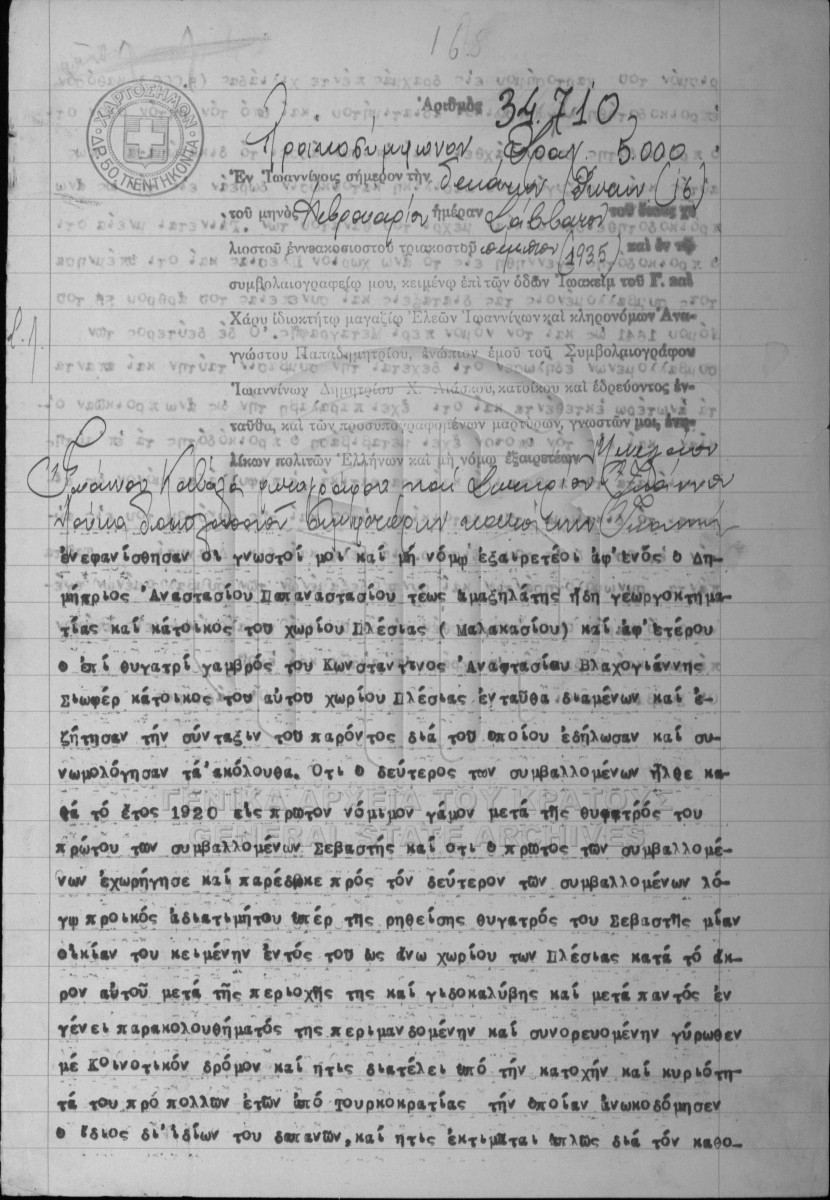 168
ΧΑΡΤΟΣΗΜΟΝ
ΔΡ. 50. ΠΕΝΤΗΚΟΝΤΑ
Ἀριθμὸς 34.710
Προικοσύμφωνον Δραχ. 5.000
Ἐν Ἰωαννίνοις σήμερον τὴν δεκάτην (16)
τοῦ μηνὸς Φεβρουαρίου ἡμέραν Σάββατον τοῦ ἔτους χι-
λιοστοῦ ἐννεακοσιοστοῦ τριακοστοῦ πέμπτου (1935) καὶ ἐν τῷ
συμβολαιογραφείῳ μου, κειμένῳ ἐπὶ τῶν ὁδῶν Ἰωακεὶμ τοῦ Γ. καὶ
Χάρυ ἰδιοκτήτῳ μαγαζίῳ Ἐλεῶν Ἰωαννίνων καὶ κληρονόμων Ἀνα-
γνώστου Παπαδημητρίου, ἐνώπιον ἐμοῦ τοῦ Συμβολαιογράφου
Ἰωαννίνων Δημητρίου Χ. Λιάσκου, κατοίκου καὶ ἑδρεύοντος ἐν-
ταῦθα, καὶ τῶν προσυπογραφομένων μαρτύρων, γνωστῶν μοι, ἐνη-
λίκων πολιτῶν Ἑλλήνων καὶ μὴ νόμῳ ἐξαιρετέων
ἐνεφανίσθησαν οι γνωστοί μοι καί μή νόμῳ ἐξαιρετέοι ἀφ'ἑνός ο Δη-
μήτριος Ἀναστασίου Παπαναστασίου τέως ἁμαξηλάτης ἤδη γεωργοκτημα-
τίας καί κάτοικος του χωρίου Πλέσιας ( Μαλακασίου) καί ἀφ'ετέρου
ο ἐπί θυγατρί γαμβρός του Κωνσταντινος Ἀναφτασίου Βλαχογιάννης
Σιωφέρ κάτοικος του αὐτου χωρίου Πλέσιας ἐνταῦθα διαμένων καί ἐ-
ζήτησαν τήν σύνταξιν του παρόντος διά του οποίου ἐδήλωσαν καί συ-
νωμολόγησαν τά'ακόλουθα. Οτι ο δεύτερος των συμβαλλομένων ἦλθε κα-
τά τό ἔτος 1920 εἰς πρωτον νόμιμον γάμον μετά τῆς θυγατρός του
πρώτου των συμβαλλομένων Σεβαστῆς καί οτι ο πρωτος των συμβαλλομέ-
νων ἐχωρήγησε καί παρέδωκε πρός τόν δεύτερον των συμβαλλομένων λό-
γῳ προικός ἀδιατιμήτου υπέρ τῆς ρηθείσης θυγατρός του Σεβαστῆς μίαν
οικίαν του κειμένην ἐντός του ως άνω χωρίου των Πλέσιας κατά τό ἄκ-
ρον αὐτοῦ μετά τῆς περιοχῆς της καί γιδοκαλύβης καί μετά παντός ἐν
γένει παρακολουθήματός της περιμανδομένην καί συνορευομένην γύρωθεν
μέ Κοινοτικόν δρόμον καί ητις διατέλει υπό τήν κατοχήν καί κυριότη-
τά του πρό πολλων ετων ἀπό Τουρκοκρατίας τήν οποίαν ἀνωκοδόμησεν
ο ἴδιος δι'ιδίων του δαπανων, καί ητις ἐκτιμᾶται απλῶς διά τόν καθο-
ΓΕΝΙΚΑ ΑΡΧΕΙΑ ΤΟΥ ΚΡΑΤΟΥΣ
GENERAL STATE ARCHIVES